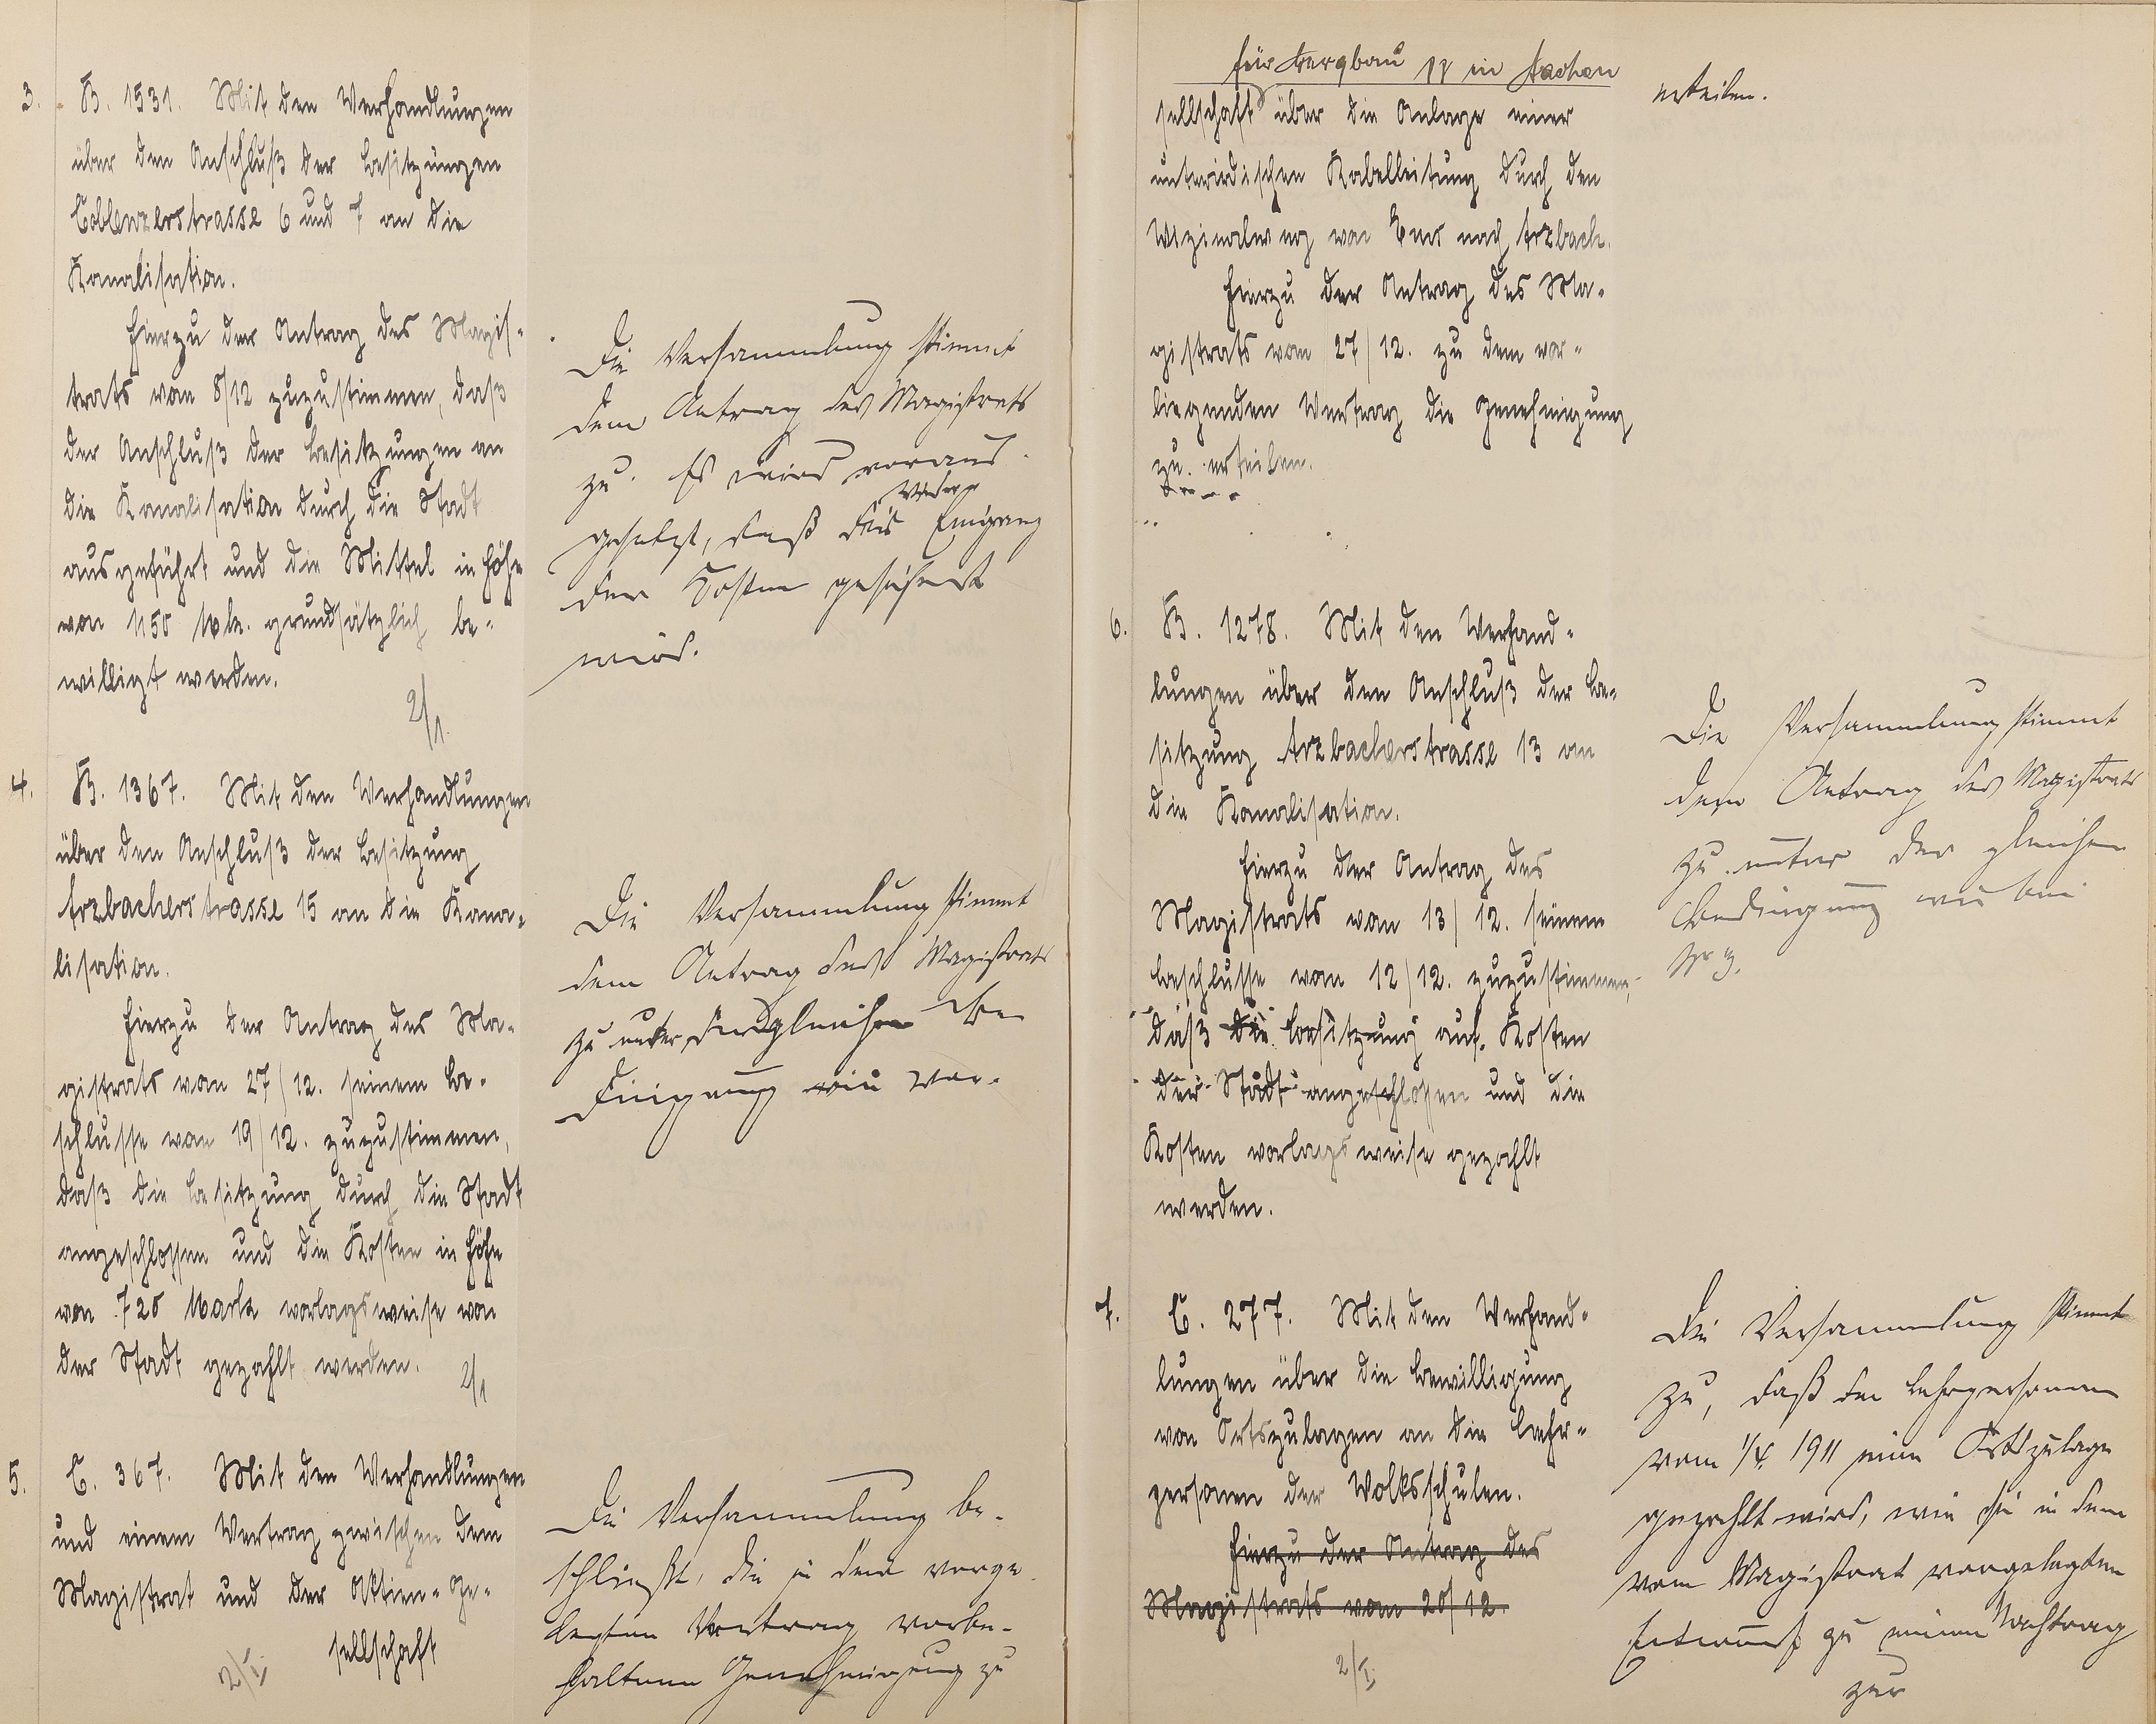 3. B. 1531. Mit den Verhandlungen
über den Anschluß der Besitzungen
Coblenzerstrasse 6 und 7 an die
Kanalisation.
Hierzu der Antrag des Magis-
trats vom 8/12 zuzustimmen, daß
der Anschluß der Besitzungen an
die Kanalisation durch die Stadt
ausgeführt und die Mittel in Höhe
von 1150 Mk. grundsätzlich be-
willigt werden.
2/1.
Die Versammlung stimmt
dem Antrag des Magistrats
zu. Es wird voraus-
gesetzt, daß der Wieder-
Eingang
der Kosten gesichert
wird.
4. B. 1367. Mit den Verhandlungen
über den Anschluß der Besitzung
Arzbacherstrasse 15 an die Kana-
lisation.
Hierzu der Antrag des Ma-
gistrats vom 27/12. seinem Be-
schlusse vom 19/12. zuzustimmen,
daß die Besitzung durch die Stadt
angeschlossen und die Kosten in Höhe
von 725 Mark vorlagsweise von
der Stadt gezahlt werden.
2/1
Die Versammlung stimmt
dem Antrag des Magistrats
zu unter der gleichen Be-
dingung wie vor.
5. C. 367. Mit den Verhandlungen
und einem Vertrag zwischen dem
Magistrat und der Aktien-Ge-
sellschaft
2/I.
Die Versammlung be-
schließt, die in dem vorge-
legten Vertrag vorbe-
haltene Genehmigung zu
für Bergbau pp in Aachen
sellschaft über die Anlage einer
unterirdischen Kabelleitung durch den
Vizinalweg von Ems nach Arzbach.
Hierzu der Antrag des Ma-
gistrats vom 27/12. zu dem vor-
liegenden Vertrag die Genehmigung
zu erteilen.
erteilen.
6. B. 1278. Mit den Verhand-
lungen über den Anschluß der Be-
sitzung Arzbacherstrasse 13 an
die Kanalisation.
Hierzu der Antrag des
Magistrats vom 13/12. seinem
Beschlusse vom 12/12. zuzustimmen,
daß die Besitzung auf Kosten
der Stadt angeschlossen und die
Kosten vorlagsweise gezahlt
werden.
Die Versammlung stimmt
dem Antrag des Magistrats
zu unter der gleichen
Bedingung wie bei
Nr 3.
7. C. 277. Mit den Verhand-
lungen über die Bewilligung
von Ortszulagen an die Lehr-
personen der Volksschulen.
Hierzu der Antrag des
Magistrats vom 20/12.
2/I.
Die Versammlung stimmt
zu, daß den Lehrpersonen
vom 1/4. 1911 eine Ortszulage
gezahlt wird, wie sie in dem
vom Magistrat vorgelegten
Entwurf zu einem Nachtrag
zur